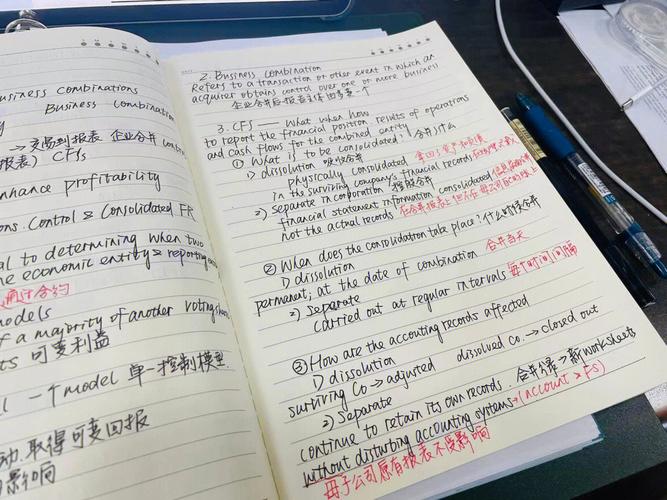 usiness combinations
Business combination
→ 交易到报表 企业合并 cont
报表) CFS
nhance profitability
ons. Control & Consolidated FR
al to determining when two
ne economic entity & reporting
通过合约
nodels
f a majority of another voting sha
ts 可变利益
l 一个model 单一控制模型.
动.取得可变回报
影响
2. Business combination
Refers to a transaction or other event in which an
acquirer obtains control over one or more business
企业合并后报表主体
一个
3. CFS —— What when how
to report the financial position, results of operations
and cash flows for the combined entity
① What is to be consolidated: 合并什么
1) dissolution 吸收合并
physically consolidated 拿回了资产和负债
in the surviving company's financial records
2) Separate incorporation 控股合并
financial statement information consolidated
not the actual records 在合并报表上
② When does the consolidation take place: 什么时候合并
1) dissolution
permanent; at the date of combination 合并当天
2) Separate
carried out at regular intervals 每个时间间隔
③ How are the accouting records affected
1) dissolution
surviving Co → adjusted dissolved Co. → closed out
2) Separate
continue to retain its own records. 合并 → 新 worksheets
without disturbing accounting systems → (account > FS)
母子公司原有报表不受影响